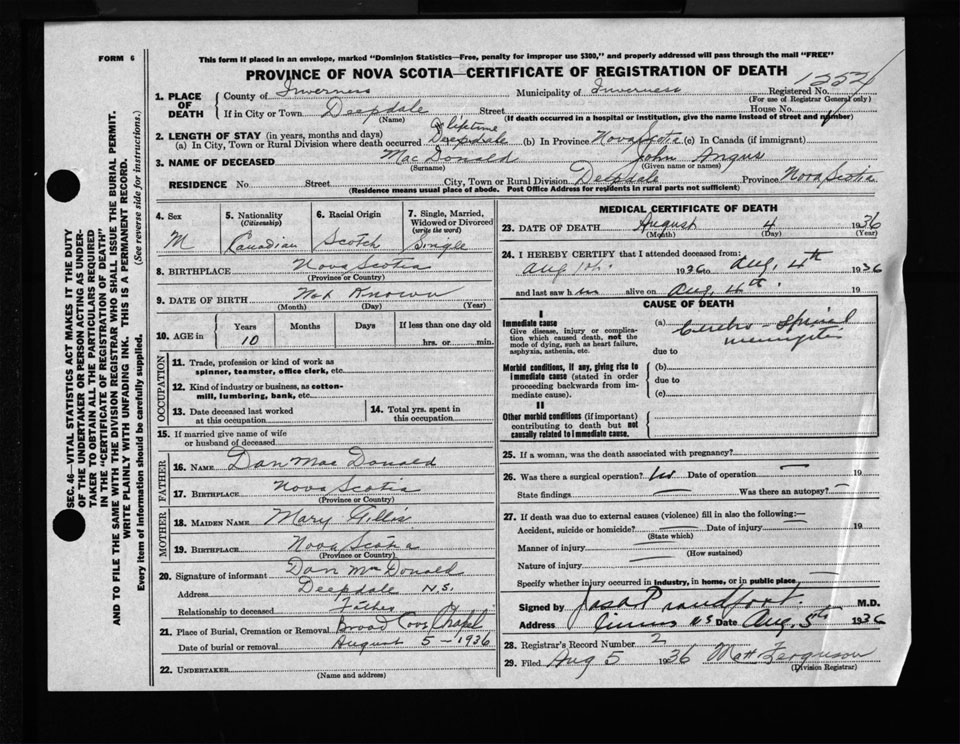 FORM 6
This form if placed in an envelope, marked "Dominion Statistics—Free, penalty for improper use $300," and properly addressed will pass through the mail "FREE"
PROVINCE OF NOVA SCOTIA—CERTIFICATE OF REGISTRATION OF DEATH
SEC. 46—VITAL STATISTICS ACT MAKES IT THE DUTY
OF THE UNDERTAKER OR PERSON ACTING AS UNDER-
TAKER TO OBTAIN ALL THE PARTICULARS REQUIRED
IN THE "CERTIFICATE OF REGISTRATION OF DEATH"
AND TO FILE THE SAME WITH THE DIVISION REGISTRAR WHO SHALL ISSUE THE BURIAL PERMIT.
WRITE PLAINLY WITH UNFADING INK. THIS IS A PERMANENT RECORD.
Every item of information should be carefully supplied. (See reverse side for instructions.)
1. PLACE OF DEATH
County of Inverness Municipality of Inverness Registered No.
(For use of Registrar General only)
If in City or Town Deepdale Street House No.
(Name) (If death occurred in a hospital or institution, give the name instead of street and number)
2. LENGTH OF STAY (in years, months and days)
lifetime
(a) In City, Town or Rural Division where death occurred Deepdale (b) In Province Nova Scotia (c) In Canada (if immigrant)
3. NAME OF DECEASED MacDonald John Angus
(Surname) (Given name or names)
RESIDENCE No Street City, Town or Rural Division Deepdale Province Nova Scotia
(Residence means usual place of abode. Post Office Address for residents in rural parts not sufficient)
4. Sex M
5. Nationality (Citizenship) Canadian
6. Racial Origin Scotch
7. Single, Married, Widowed or Divorced (write the word) Single
8. BIRTHPLACE Nova Scotia
(Province or Country)
9. DATE OF BIRTH Not Known
(Month) (Day) (Year)
10. AGE in Years Months Days If less than one day old
10 hrs. or min.
OCCUPATION
11. Trade, profession or kind of work as
spinner, teamster, office clerk, etc.
12. Kind of industry or business, as cotton-
mill, lumbering, bank, etc.
13. Date deceased last worked
at this occupation
14. Total yrs. spent in
this occupation
15. If married give name of wife
or husband of deceased
FATHER
16. NAME Dan Mac Donald
17. BIRTHPLACE Nova Scotia
(Province or Country)
MOTHER
18. MAIDEN NAME Mary Gillis
19. BIRTHPLACE Nova Scotia
(Province or Country)
20. Signature of informant Dan Mac Donald
Address Deepdale N.S.
Relationship to deceased Father
21. Place of Burial, Cremation or Removal Broad Cove Chapel
Date of burial or removal August 5 — 1936
22. UNDERTAKER
(Name and address)
MEDICAL CERTIFICATE OF DEATH
23. DATE OF DEATH August 4 1936
(Month) (Day) (Year)
24. I HEREBY CERTIFY that I attended deceased from:
Aug 1st. 1936 to Aug, 4th 1936
and last saw him alive on Aug, 4th. 19
CAUSE OF DEATH
I
Immediate cause
Give disease, injury or complica-
tion which caused death, not the
mode of dying, such as heart failure,
asphyxia, asthenia, etc.
(a) Cerebro-Spinal
meningitis
due to
Morbid conditions, if any, giving rise to
immediate cause (stated in order
proceeding backwards from im-
mediate cause).
(b)
due to
(c)
II
Other morbid conditions (if important)
contributing to death but not
causally related to immediate cause.
25. If a woman, was the death associated with pregnancy?
26. Was there a surgical operation? no Date of operation — 19
State findings — Was there an autopsy? —
27. If death was due to external causes (violence) fill in also the following:—
Accident, suicide or homicide? — Date of injury 19
(State which)
Manner of injury
(How sustained)
Nature of injury
Specify whether injury occurred in industry, in home, or in public place.
Signed by M.D.
Address N S Date Aug. 5th 1936
28. Registrar's Record Number 2
29. Filed Aug 5 1936 Ferguson
(Division Registrar)